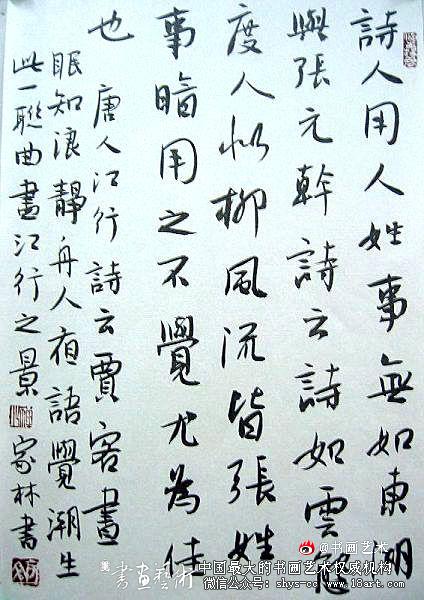 詩人用人姓事無如東湖
與張元幹詩云詩如雲態
度人似柳風流皆張姓
事暗用之不覺尤為佳
也 唐人江行詩云賈客晝
眠知浪靜舟人夜語覺潮生
此一聯曲盡江行之景 家林書
@书画艺术
書畫藝術
中国最大的书画艺术权威机构
微信公众号：shys-cc www.18art.com